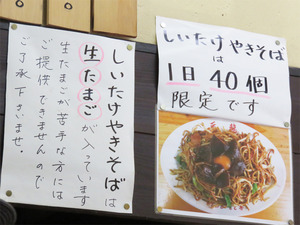 しいたけやきそばは
生たまごが入っています
生たまごが苦手な方には
ご提供できませんので
ご了承下さいませ。
しいたけやきそば
は
1日40個
限定です